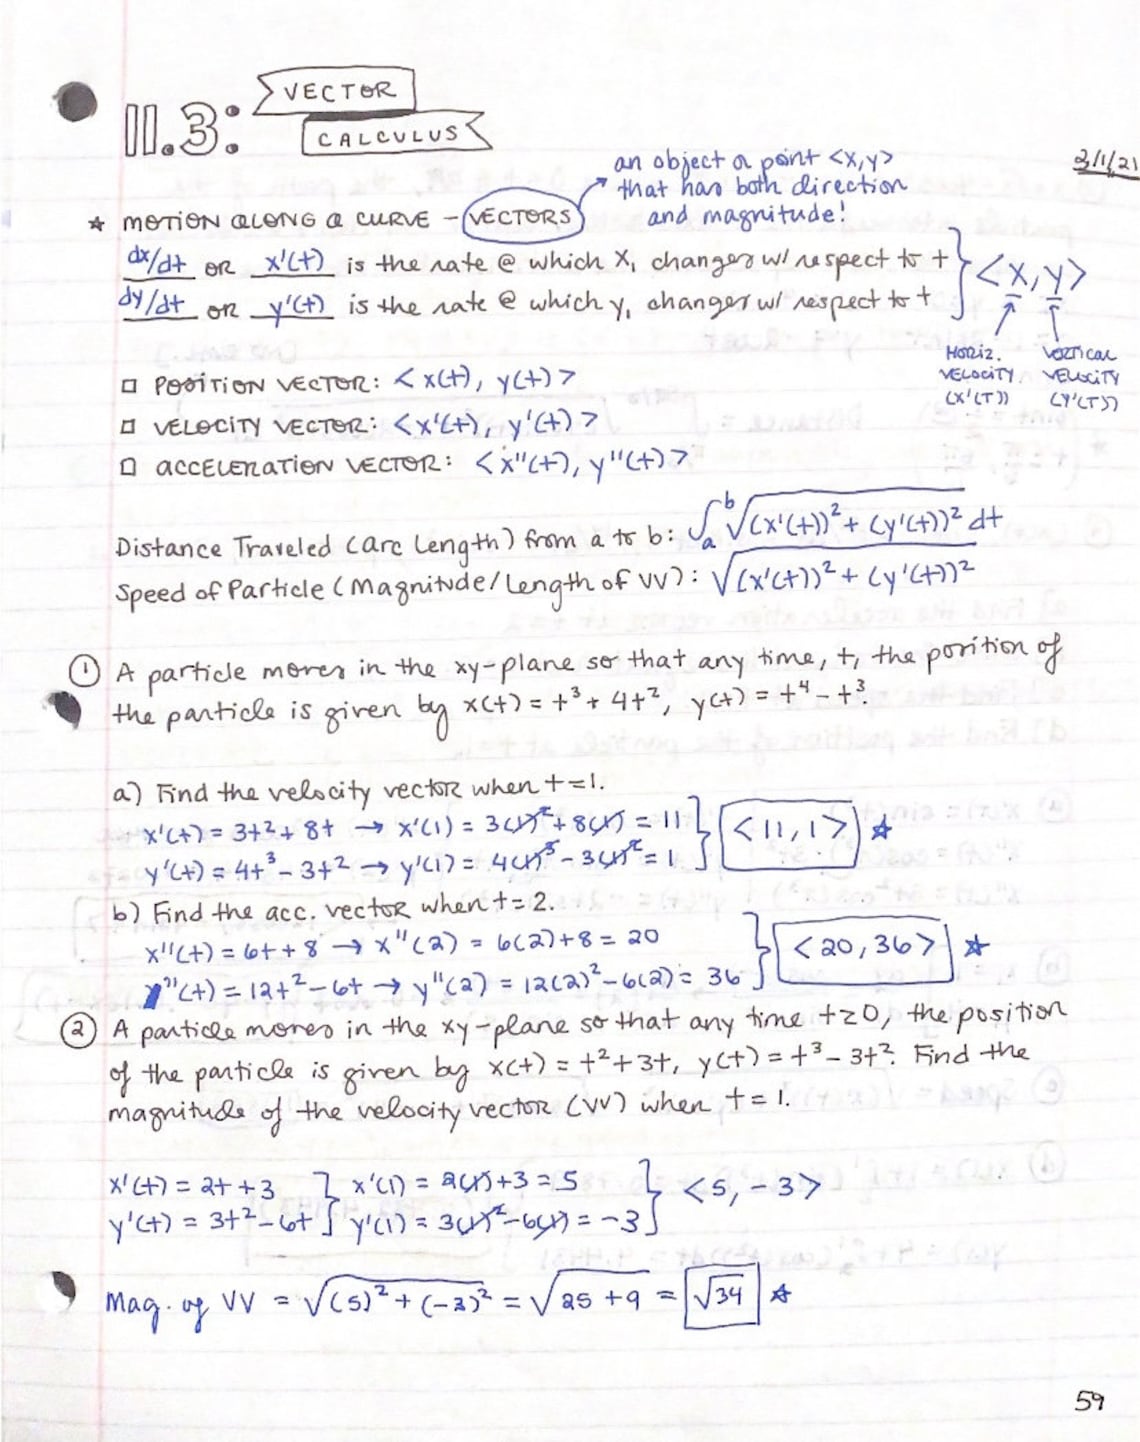 11.3: VECTOR
CALCULUS
an object or point <x,y>
that has both direction
and magnitude!
2/1/21
★ MOTION ALONG A CURVE - VECTORS
dx/dt OR x'(t) is the rate @ which x, changes w/ respect to t
dy/dt OR y'(t) is the rate @ which y, changes w/ respect to t
<x,y>
HORIZ. VELOCITY (x'(T))
VERTICAL VELOCITY (y'(T))
□ POSITION VECTOR: <x(t), y(t)>
□ VELOCITY VECTOR: <x'(t), y'(t)>
□ ACCELERATION VECTOR: <x"(t), y"(t)>
Distance Traveled (Arc Length) from a to b: ∫ₐᵇ √(x'(t))² + (y'(t))² dt
Speed of Particle (Magnitude/Length of VV): √(x'(t))² + (y'(t))²
① A particle moves in the xy-plane so that any time, t, the position of
the particle is given by x(t) = t³ + 4t², y(t) = t⁴ - t³.
a) Find the velocity vector when t=1.
x'(t) = 3t² + 8t → x'(1) = 3(1)² + 8(1) = 11 } <11,1> ☆
y'(t) = 4t³ - 3t² → y'(1) = 4(1)³ - 3(1)² = 1
b) Find the acc. vector when t=2.
x"(t) = 6t+8 → x"(2) = 6(2)+8 = 20 } <20,36> ☆
y"(t) = 12t² - 6t → y"(2) = 12(2)² - 6(2) = 36
② A particle moves in the xy-plane so that any time t≥0, the position
of the particle is given by x(t) = t² + 3t, y(t) = t³ - 3t². Find the
magnitude of the velocity vector (VV) when t=1.
x'(t) = 2t+3 } x'(1) = 2(1)+3 = 5 } <5, -3>
y'(t) = 3t² - 6t } y'(1) = 3(1)² - 6(1) = -3
Mag. of VV = √(5)² + (-3)² = √25 + 9 = √34 ☆
59